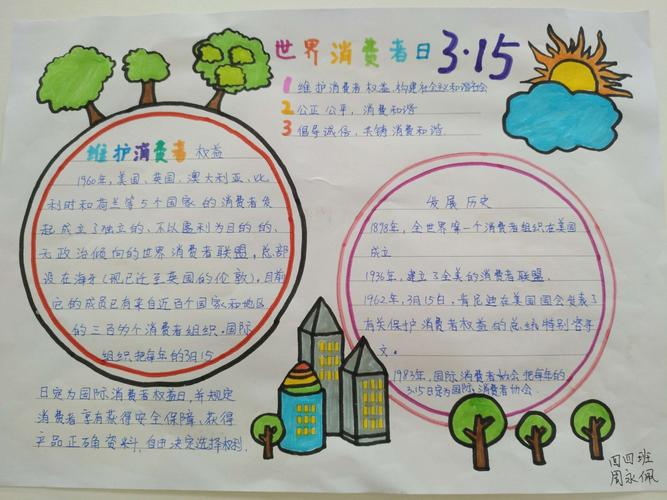 世界消费者日 3·15
1 维护消费者权益,构建社会主义和谐社会
2 公正公平,消费和谐
3 倡导诚信,共铸消费和谐
维护消费者 权益
1960年,美国、英国、澳大利亚、比
利时和荷兰等5个国家的消费者发
起成立了独立的、不以盈利为目的的、
无政治倾向的世界消费者联盟,总部
设在海牙(现已迁至英国的伦敦).目前
它的成员已有来自近百个国家和地区
的三百为个消费者组织.国际
组织把每年的3月15
日定为国际消费者权益日,并规定
消费者享有获得安全保障、获得
产品正确资料,自由决定选择权利.
发展历史
1898年,全世界第一个消费者组织在美国
成立
1936年,建立了全美的消费者联盟.
1962年,3月15日,肯尼迪在美国国会发表了
有关保护消费者权益的总统特别咨
文。
1983年,国际消费者协会把每年的
3.15日定为国际消费者协会.
四四班
周永佩